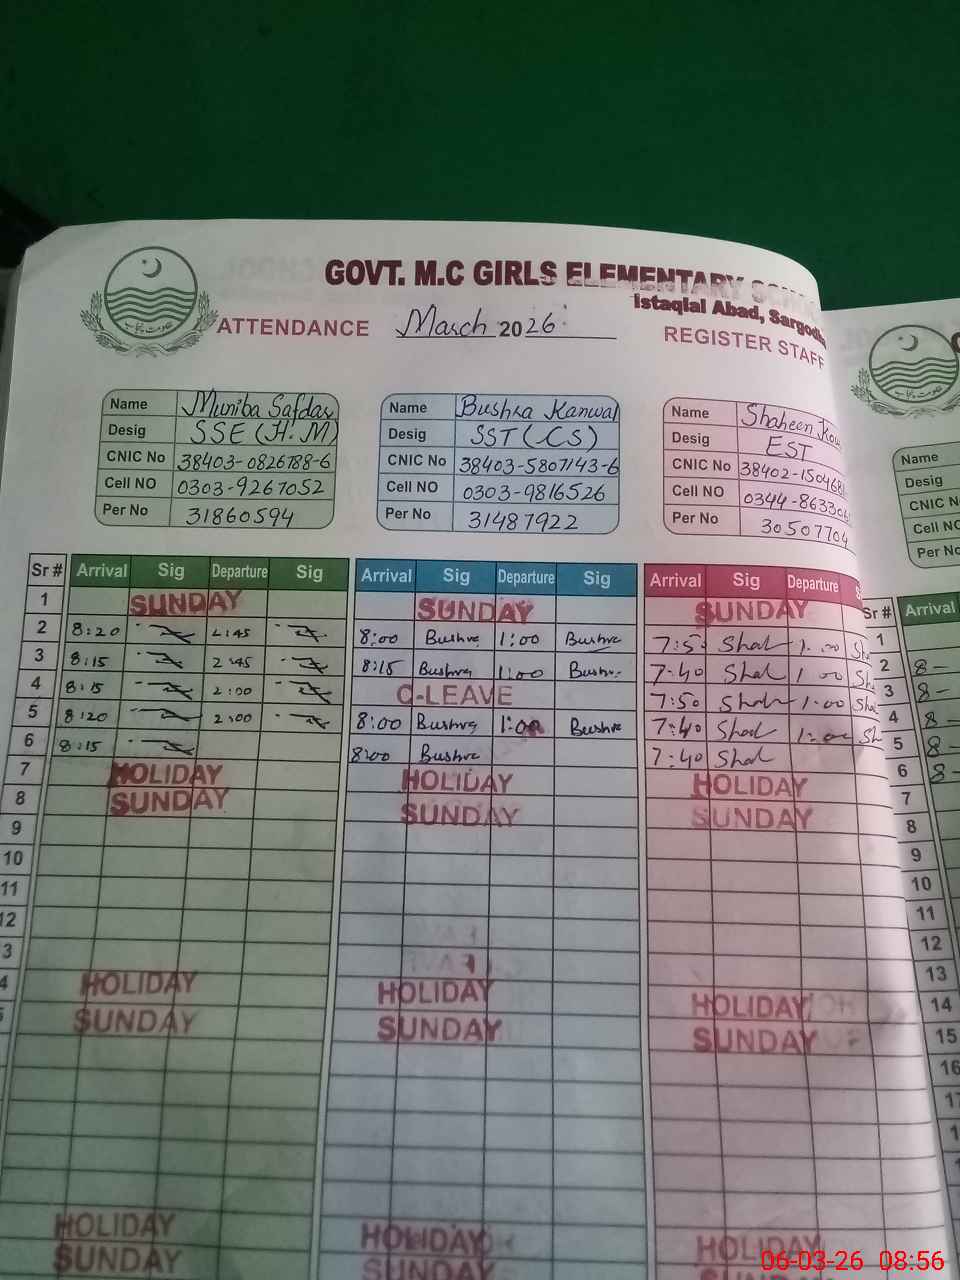 GOVT. M.C GIRLS ELEMENTARY SCHOOL
Istaqlal Abad, Sargodha
ATTENDANCE March 2026 REGISTER STAFF
Name Muniba Safdar
Desig SSE (H.M)
CNIC No 38403-0826788-6
Cell NO 0303-9267052
Per No 31860594
Name Bushra Kanwal
Desig SST (CS)
CNIC No 38403-5807143-6
Cell NO 0303-9816526
Per No 31487922
Name Shaheen
Desig EST
CNIC No 38402-150468
Cell NO 0344-86330
Per No 30507704
Name
Desig
CNIC No
Cell NO
Per No
Sr # Arrival Sig Departure Sig Arrival Sig Departure Sig Arrival Sig Departure Sr # Arrival
1 SUNDAY SUNDAY SUNDAY 1
2 8:20 8:00 Bushra 1:00 Bushra 7:5 Shah 1:00 2 8-
3 8:15 2:45 8:15 Bushra 1:00 Bushra 7:40 Shah 1:00 3 8-
4 8:15 2:00 C-LEAVE 7:50 Shah 1:00 4 8-
5 8:20 2:00 8:00 Bushra 1:00 Bushra 7:40 Shah 1:00 5 8-
6 8:15 8:00 Bushra 7:40 Shah 6 8-
7 HOLIDAY HOLIDAY HOLIDAY 7
8 SUNDAY SUNDAY SUNDAY 8
9 9
10 10
11 11
12 12
3 13
4 HOLIDAY HOLIDAY HOLIDAY 14
SUNDAY SUNDAY SUNDAY 15
16
HOLIDAY HOLIDAY HOLIDAY
SUNDAY SUNDAY SUNDAY
06-03-26 08:56